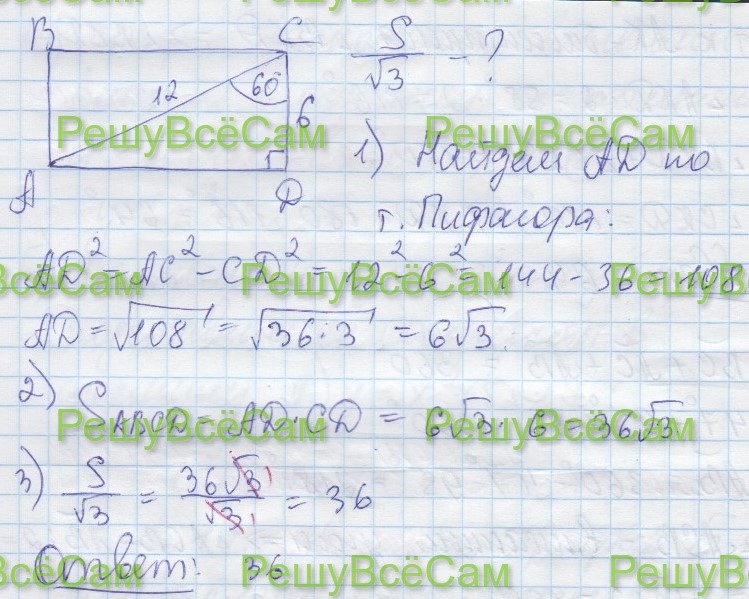 B C S/√3 - ?
12 60° 6
A D
1) Найдем AD по
т. Пифагора:
AD² = AC² - CD² = 12² - 6² = 144 - 36 = 108
AD = √108 = √36·3 = 6√3.
2) S ABCD = AD·CD = 6√3 · 6 = 36√3
3) S/√3 = 36√3/√3 = 36
Ответ: 36
РешуВсёСам РешуВсёСам
ВсёСам РешуВсёСам Решу
РешуВсёСам РешуВсёСам
ВсёСам РешуВсёСам РешуВ